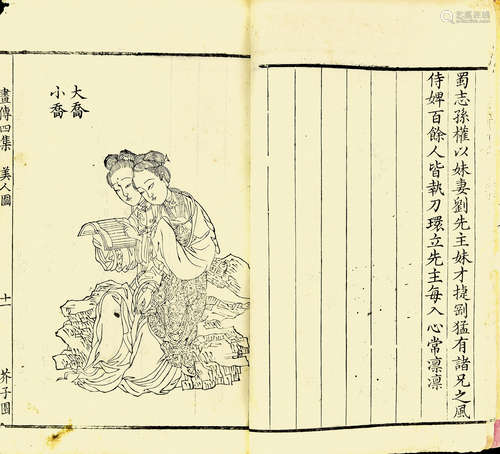 蜀志孫權以妹妻劉先主妹才捷剛猛有諸兄之風
侍婢百餘人皆執刀環立先主每入心常凛凛
大喬
小喬
畫傳四集 美人圖 十一 芥子園